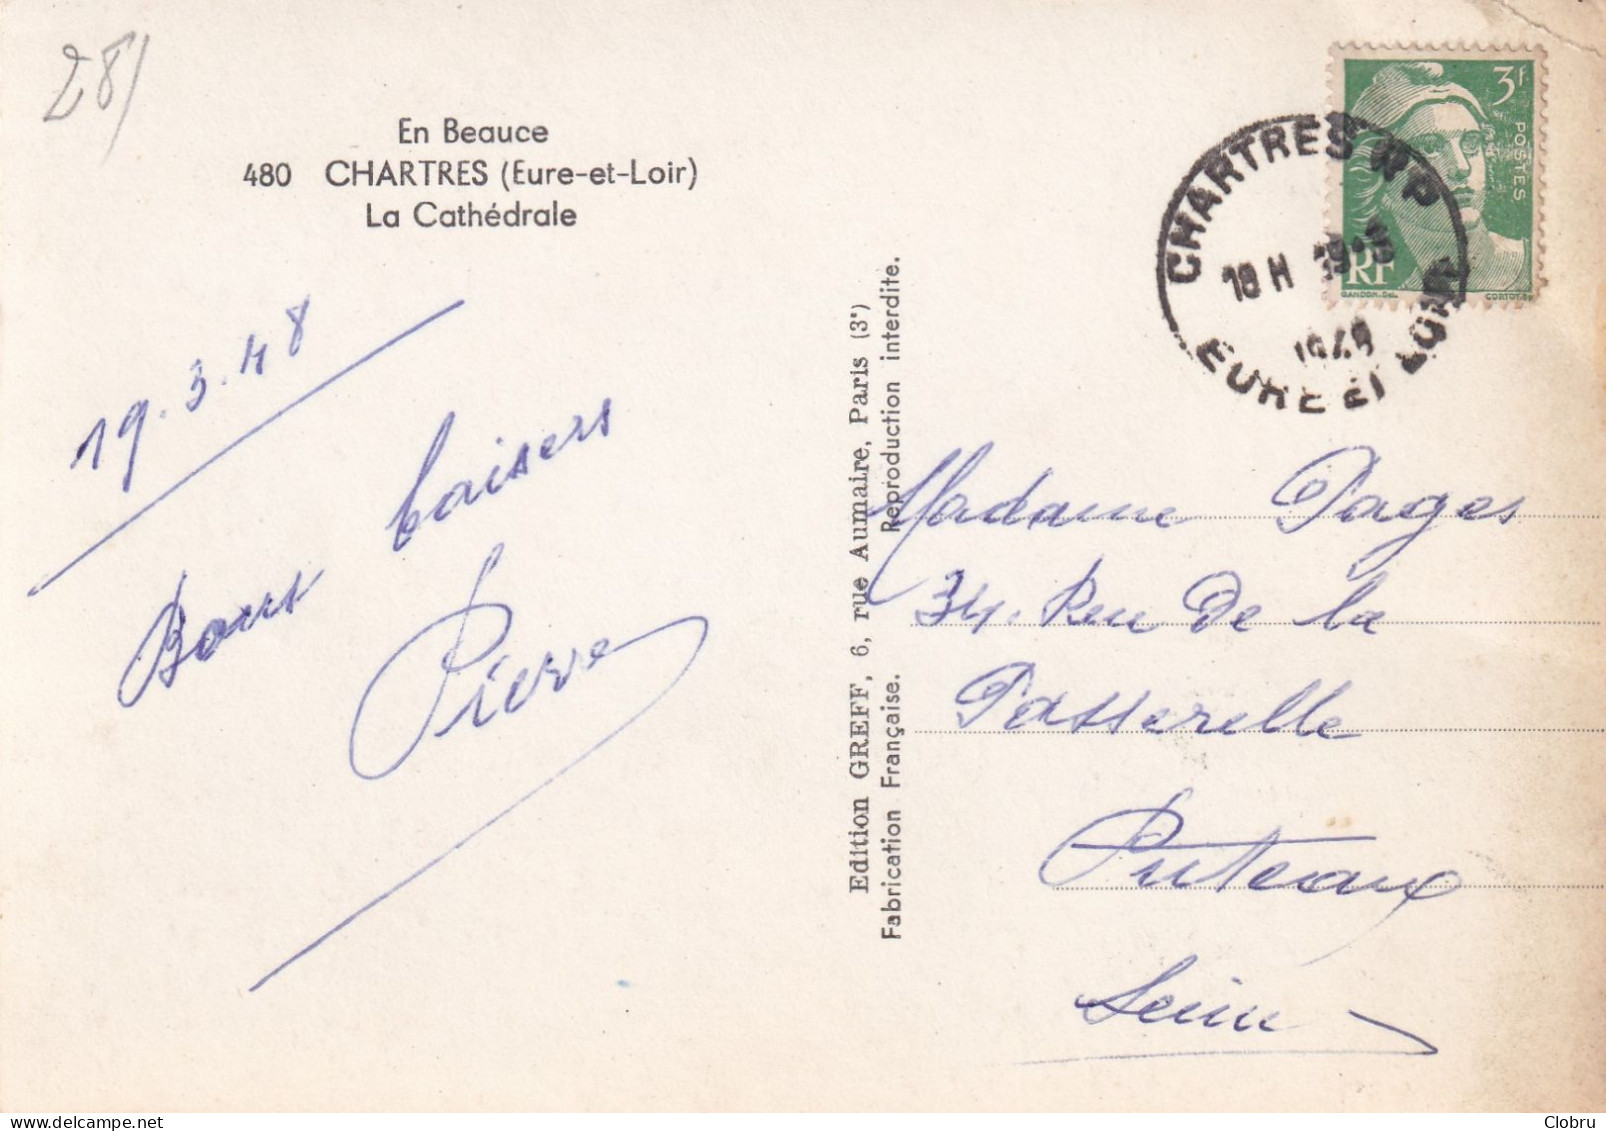 28/
En Beauce
480 CHARTRES (Eure-et-Loir)
La Cathédrale
19.3.48
Bons baisers
Pierre
Edition GREFF, 6, rue Aumaire, Paris (3e)
Fabrication Française. Reproduction interdite.
3F.
POSTES
RF
GANDON-DEL.
CORTOT-SC
CHARTRES R.P.
18 H 19-3
1948
EURE ET LOIR
Madame Pages
34. Rue De la
Passerelle
Puteaux
Seine
Clobru